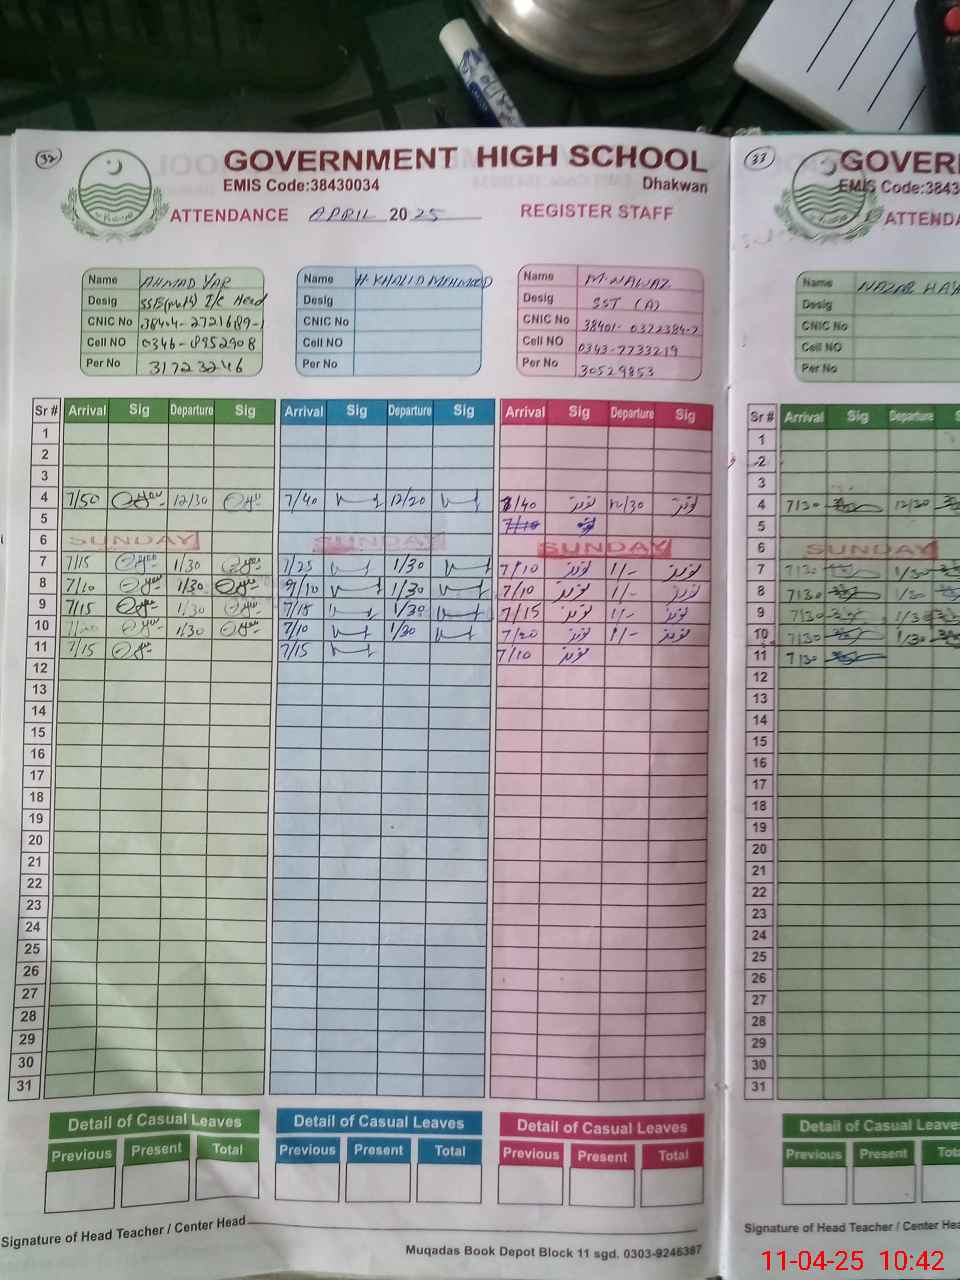 32
GOVERNMENT HIGH SCHOOL
EMIS Code:38430034 Dhakwan
ATTENDANCE APRIL 2025 REGISTER STAFF
Name AHMAD YAR
Desig SSE(math) I/c Head
CNIC No
Cell NO 0346-8952908
Per No 31723246
Name H KHALID MEHMOOD
Desig
CNIC No
Cell NO
Per No
Name M. NAWAZ
Desig SST (A)
CNIC No 38401-0322384-7
Cell NO 0343-7733219
Per No 30529853
Sr # Arrival Sig Departure Sig Arrival Sig Departure Sig Arrival Sig Departure Sig
1
2
3
4 7/50 12/30 7/40 12/20 7/40 12/30
5 7/10
6 SUNDAY SUNDAY SUNDAY
7 7/15 1/30 7/25 1/30 7/10 1/-
8 7/10 1/30 7/10 1/30 7/10 1/-
9 7/15 1/30 7/15 1/30 7/15 1/-
10 1/30 7/10 1/30 7/20 1/-
11 7/15 7/15 7/10
12
13
14
15
16
17
18
19
20
21
22
23
24
25
26
27
28
29
30
31
Detail of Casual Leaves Detail of Casual Leaves Detail of Casual Leaves
Previous Present Total Previous Present Total Previous Present Total
Signature of Head Teacher / Center Head
Muqadas Book Depot Block 11 sgd. 0303-9246387
33
GOVER
EMIS Code:3843
ATTENDA
Name NAZAR HAY
Desig
CNIC No
Cell NO
Per No
Sr # Arrival Sig Departure S
1
2
3
4 7130 12/30
5
6 SUNDAY
7 7130 1/30
8 7130 1/30
9 7130 1/30
10 7130 1/30
11 7130
12
13
14
15
16
17
18
19
20
21
22
23
24
25
26
27
28
29
30
31
Detail of Casual Leave
Previous Present Tota
Signature of Head Teacher / Center Hea
11-04-25 10:42